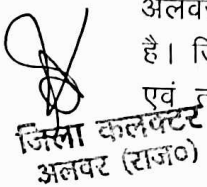 अलवर
है। जि
एवं
जिला कलक्टर
अलवर (राज०)